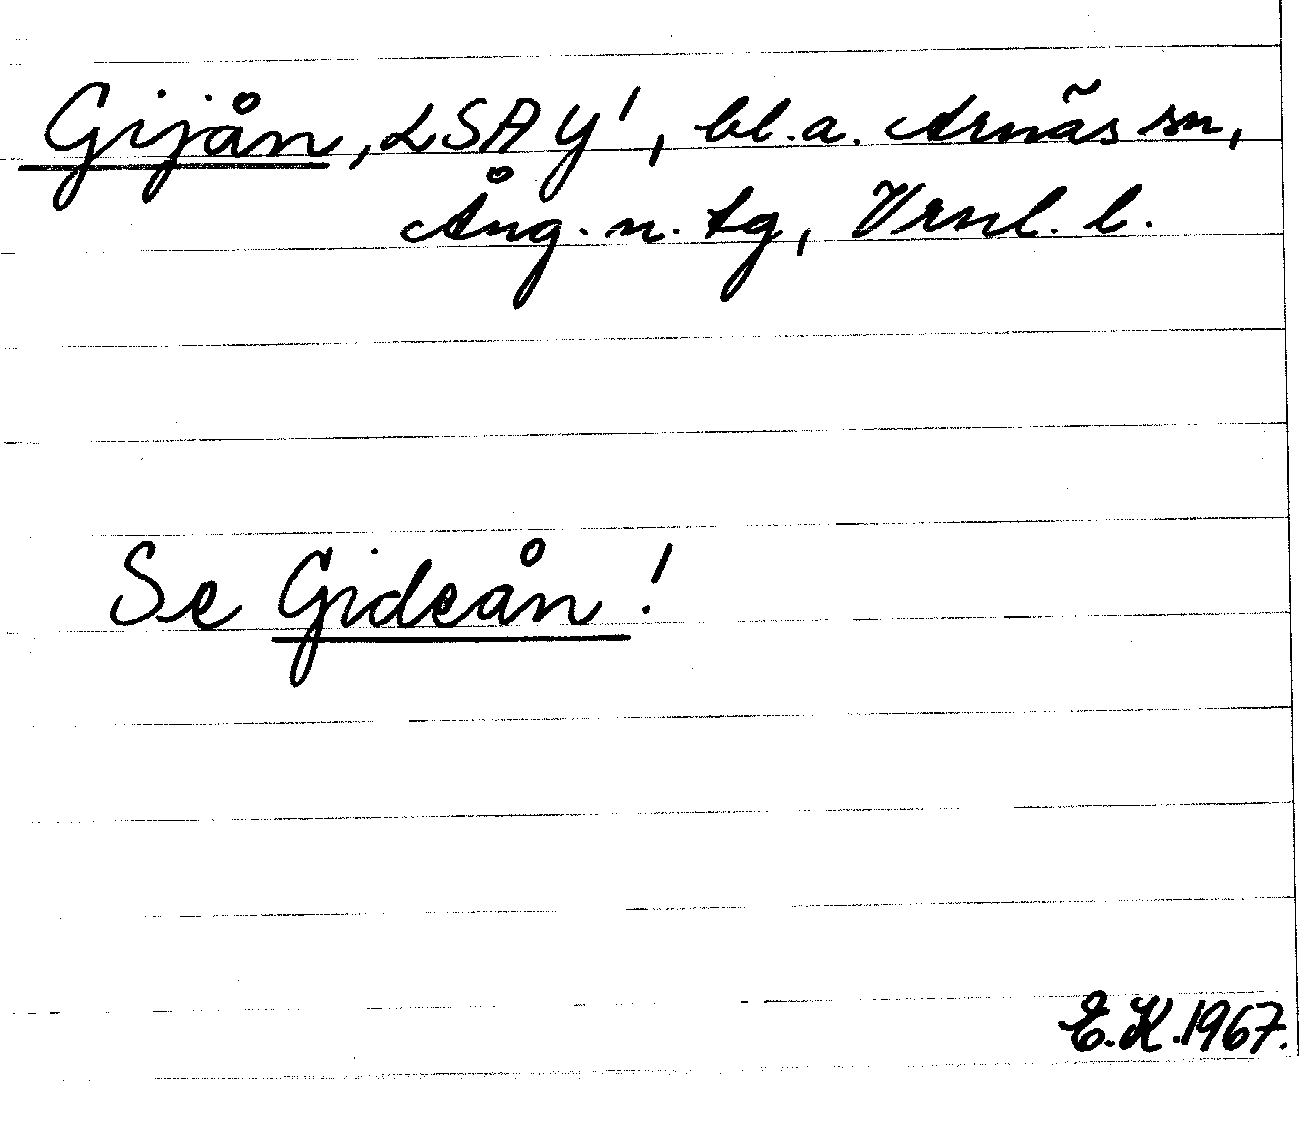 Gijån, LSA Y', bl.a. Arnäs sn,
Ång. n. tg, Vrnl. l.
Se Gideån!
E.K. 1967.